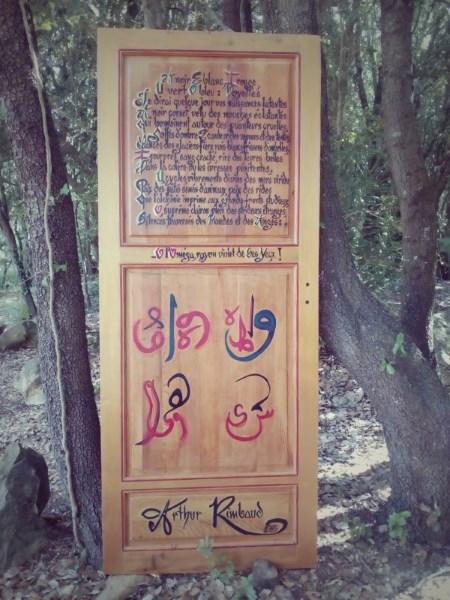 A noir E blanc I rouge
U vert O bleu : Voyelles
Je dirai quelque jour vos naissances latentes
A noir corset velu des mouches éclatantes
Qui bombinent autour des puanteurs cruelles,
Golfes d'ombre E candeur des vapeurs et des tentes
Lances des glaciers fiers rois blancs frissons d'ombelles,
I pourpres, sang craché, rire des lèvres belles
Dans la colère ou les ivresses pénitentes,
U cycles vibrements divins des mers virides
Paix des pâtis semés d'animaux paix des rides
Que l'alchimie imprime aux grands fronts studieux
O suprême clairon plein des strideurs étranges,
Silences traversés des Mondes et des Anges :
... O l'Oméga, rayon violet de Ses Yeux !
Arthur Rimbaud